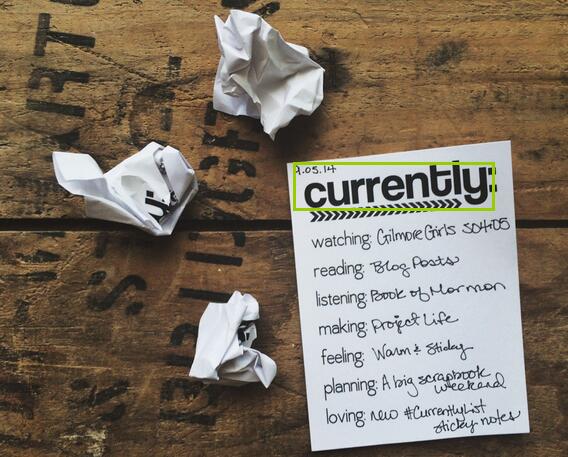 9.05.14
currently:
watching: Gilmore Girls S04:05
reading: Blog Posts
listening: Book of Mormon
making: Project Life
feeling: Warm & Sticky
planning: A big scrapbook
weekend
loving: new #CurrentlyList
sticky notes